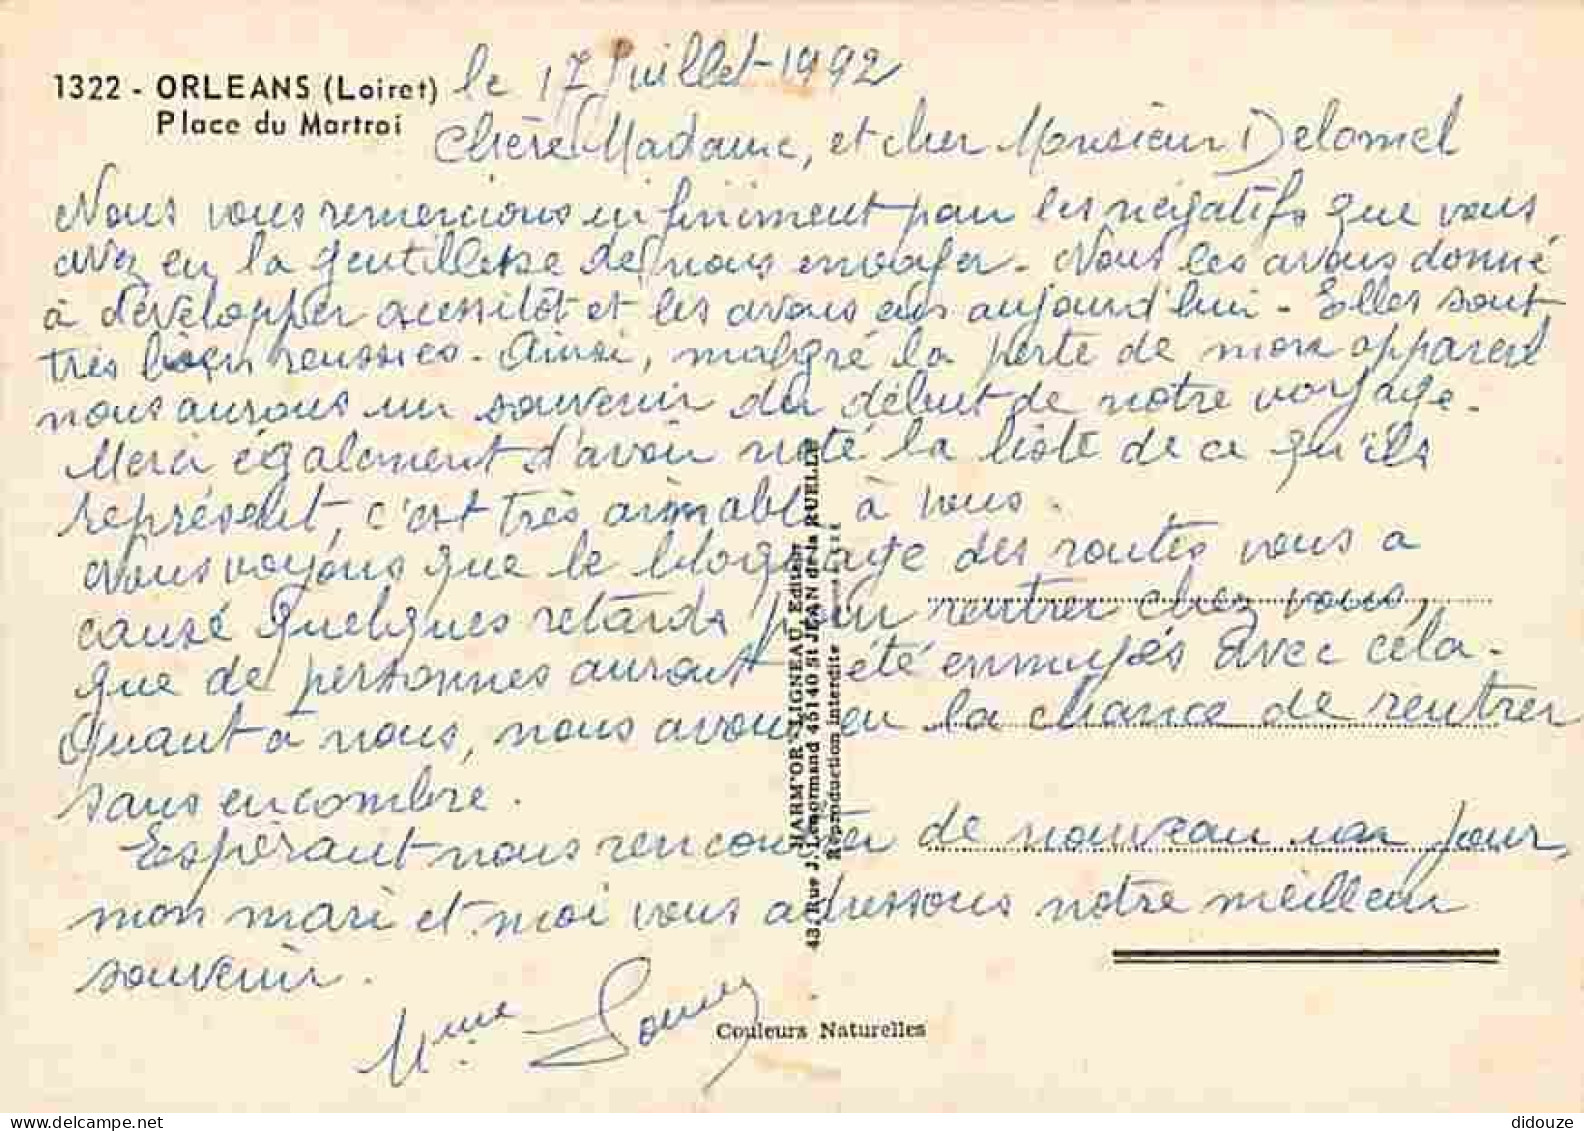 1322 - ORLEANS (Loiret)
Place du Martroi
le 17 Juillet 1992
Chère Madame, et cher Monsieur Delomel
Nous vous remercions infiniment pour les négatifs que vous
avez eu la gentillesse de nous envoyer. Nous les avons donné
à développer aussitôt et les avons eus aujourd'hui. Elles sont
très bien reussies. Ainsi, malgré la perte de mon appareil
nous aurons un souvenir du début de notre voyage.
Merci également d'avoir noté la liste de ce qu'ils
représent, c'est très aimable à vous.
Nous voyons que le bloquage des routes vous a
causé quelques retards pour rentrer chez vous,
que de personnes auront été ennuyés avec cela.
Quant à nous, nous avons eu la chance de rentrer
sans encombre.
Espérant nous rencontrer de nouveau un jour,
mon mari et moi vous adressons notre meilleur
souvenir.
Mme
HARM'OR - LIGNEAU, Editeur
43, Rue J. Lenormand 45140 St JEAN de la RUELLE
Reproduction interdite
Couleurs Naturelles
didouze